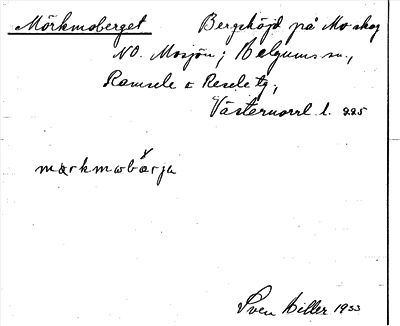 Mörkmoberget Bergshöjd på Mo skog
NO. Mosjön; Helgums sn.,
Ramsele o Resele tg,
Västernorrl. l. 225
mœrkmobœ́rja
Sven Hiller 1933